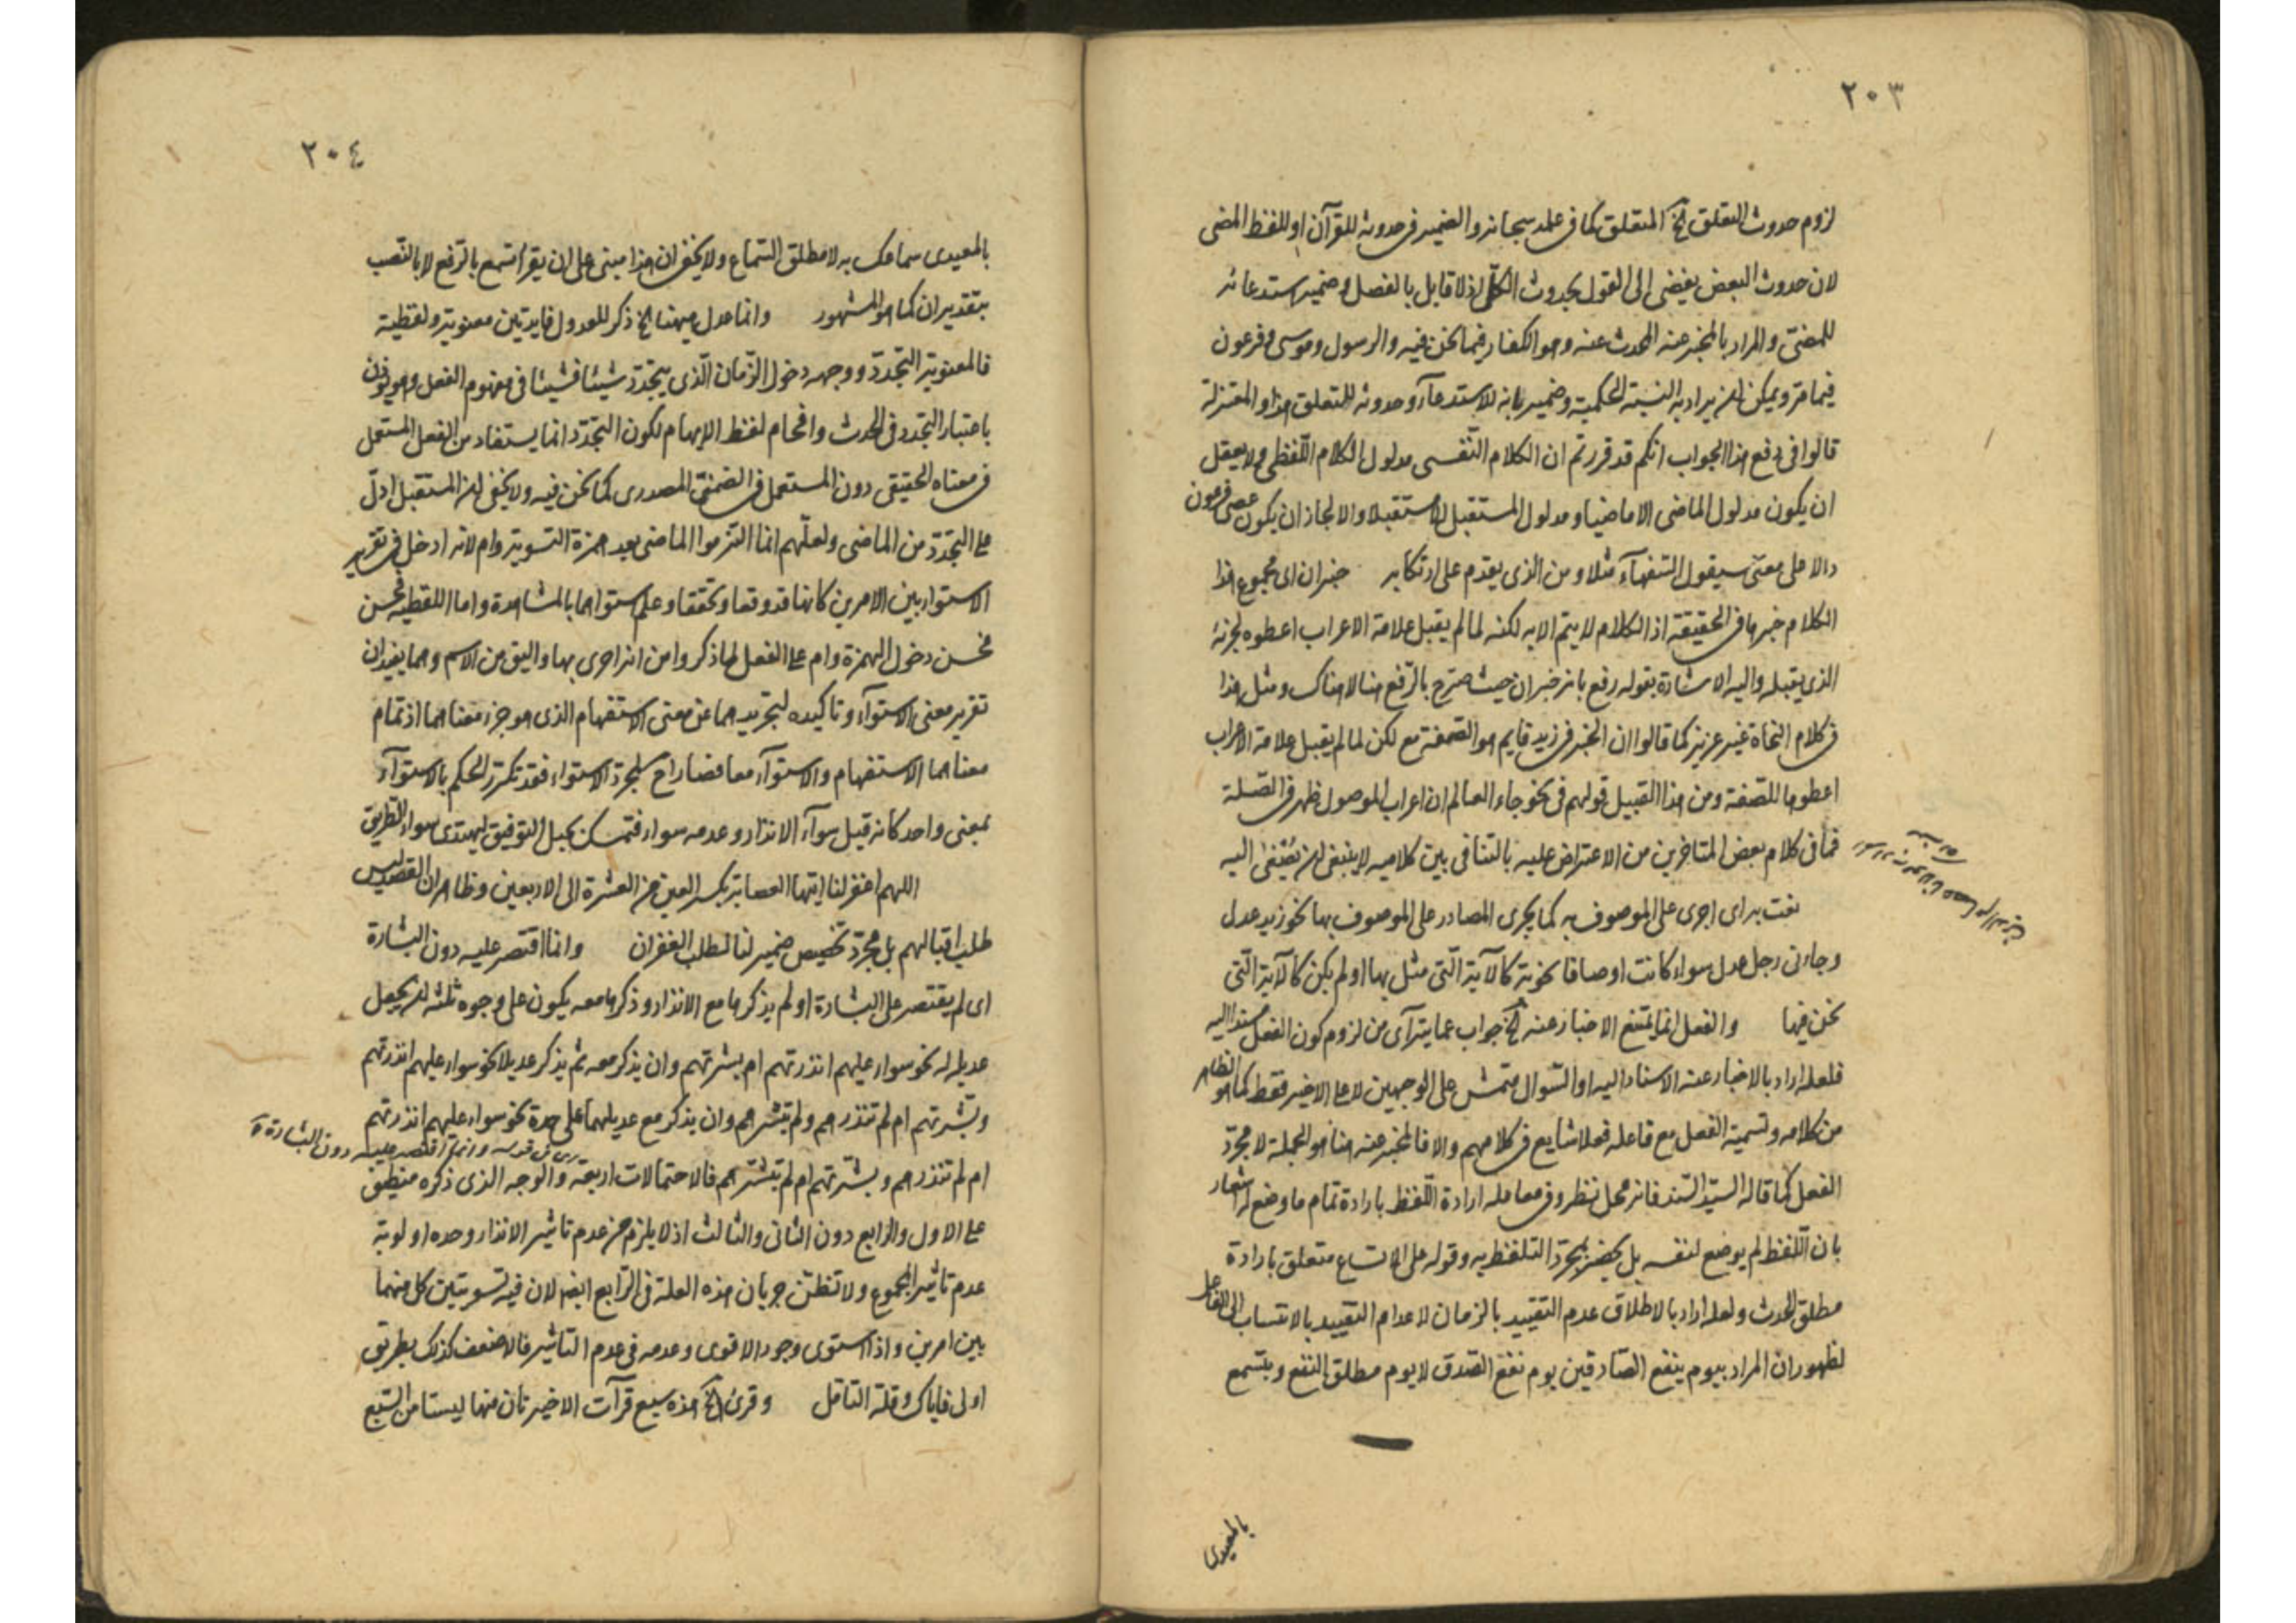 ٢٠٣
لزوم حدوث التعلق الخ المتعلق كما في علمه سبحانه والضمير في حدوثه للقرآن او للفظ المضى
لان حدوث البعض يفضى الى القول بحدوث الكل اذ لا قايل بالفصل وضمير استدعائه
للمضى والمراد بالمخبر عنه المحدث عنه وهو الكفار فيما نحن فيه والرسول وموسى وفرعون
فيما مر ويمكن ان يراد به النسبة الحكمية وضمير بانه للاستدعآء وحدوثه للتعلق هذا والمعتزلة
قالوا في دفع هذا الجواب انكم قد قررتم ان الكلام النفسى مدلول الكلام اللفظى ولا يعقل
ان يكون مدلول الماضى الا ماضيا ومدلول المستقبل الا مستقبلا والا لجاز ان يكون عصى فرعون
دالا على معنى سيقول السفهآء مثلا ومن الذى يقدم على ارتكابه خبر ان اى مجموع هذا
الكلام خبرها في الحقيقة اذ الكلام لا يتم الا به لكنه لما لم يقبل علامة الاعراب اعطوه لجزئه
الذى يقبله واليه الاشارة بقوله رفع بانه خبر ان حيث صرح بالرفع هنا لا هناك ومثل هذا
في كلام النحاة غير عزيز كما قالوا ان الخبر في زيد قايم هو الصفة مع لكن لما لم يقبل علامة الاعراب
اعطوها للصفة ومن هذا القبيل قولهم في نحو جاء العالم ان اعراب الموصول ظهر في الصلة
فما في كلام بعض المتاخرين من الاعتراض عليه بالتنافى بين كلاميه لا ينبغى ان يصغى اليه
نعت به اى اجرى على الموصوف به كما يجرى المصادر على الموصوف بها نحو زيد عدل
وجاءنى رجل عدل سواء كانت اوصافا نحوية كالآية التى مثل بها او لم يكن كالآية التى
نحن فيها والفعل انما يمتنع الاخبار عنه الخ جواب عما يترآى من لزوم كون الفعل مسندا اليه
فلعله اراد بالاخبار عنه الاسناد اليه او السؤال متمش على الوجهين لا على الاخير فقط كما هو الظاهر
من كلامه وتسمية الفعل مع فاعله فعلا شايع في كلامهم والا فالمخبر عنه هنا هو الجملة لا مجرد
الفعل كما قاله السيد السند فانه محل نظر وفى معامله ارادة اللفظ بارادة تمام ما وضع له اشعار
بان اللفظ لم يوضع لنفسه بل يحضر بمجرد التلفظ به وقوله على الاتساع متعلق بارادة
مطلق الحدث ولعله اراد بالاطلاق عدم التقييد بالزمان لا عدم التقييد بالانتساب الى الفاعل
لظهور ان المراد بيوم ينفع الصادقين يوم نفع الصدق لا يوم مطلق النفع وبتسمع
بالمعيدى
٢٠٤
بالمعيدى سماعك به لا مطلق السماع ولا يخفى ان هذا مبنى على ان يقرأ تسمع بالرفع لا بالنصب
بتقدير ان كما هو المشهور وانما عدل ههنا الخ ذكر للعدول فايدتين معنوية ولفظية
فالمعنوية التجدد ووجهه دخول الزمان الذى يتجدد شيئا فشيئا في مفهوم الفعل وهو يؤذن
باعتبار التجدد في الحدث واقحام لفظ الايهام لكون التجدد انما يستفاد من الفعل المستعمل
في معناه الحقيقى دون المستعمل في الضمنى المصدرى كما نحن فيه ولا يخفى ان المستقبل ادل
على التجدد من الماضى ولعلهم انما التزموا الماضى بعد همزة التسوية وام لانه ادخل في تقرير
الاستواء بين الامرين كانهما قد وقعا وتحققا وعلم استواءهما بالمشاهدة واما اللفظية فحسن
فحسن دخول الهمزة وام على الفعل لما ذكروا من انه احرى بها واليق من الاسم وهما يفيدان
تقرير معنى الاستوآء وتاكيده لتجريدهما عن معنى الاستفهام الذى هو جزء معناهما اذ تمام
معناهما الاستفهام والاستوآء معا فصارا ح لمجرد الاستواء فقد تكرر الحكم بالاستوآء
بمعنى واحد كانه قيل سوآء الانذار وعدمه سواء فتمسك بحبل التوفيق ليهتدى سواء الطريق
اللهم اغفر لنا ايتها العصابة بكسر العين من العشرة الى الاربعين وظاهر ان القصد ليس
طلب اقبالهم بل مجرد تخصيص ضمير لنا لطلب الغفران وانما اقتصر عليه دون البشارة
اى لم يقتصر على البشارة او لم يذكرها مع الانذار وذكرها معه يكون على وجوه ثلثه ان يجعل
عديله له نحو سواء عليهم انذرتهم ام بشرتهم وان يذكر معه ثم يذكر عديلا نحو سواء عليهم انذرتهم
وبشرتهم ام لم تنذرهم ولم تبشرهم وان يذكر مع عديلهما على حدة نحو سواء عليهم انذرتهم
ام لم تنذرهم وبشرتهم ام لم تبشرهم فالاحتمالات اربعة والوجه الذى ذكره منطبق
على الاول والرابع دون الثانى والثالث اذ لا يلزم من عدم تاثير الانذار وحده اولوية
عدم تاثير المجموع ولا تظنن جريان هذه العلة في الرابع ايضا لان فيه تسويتين كل منهما
بين امرين واذا استوى وجود الاقوى وعدمه في عدم التاثير فالاضعف كذلك بطريق
اولى فاياك وقلة التامل وقرئ الخ هذه سبع قرآت الاخيرتان منها ليستا من السبع
وانما اقتصر عليه دون البشارة